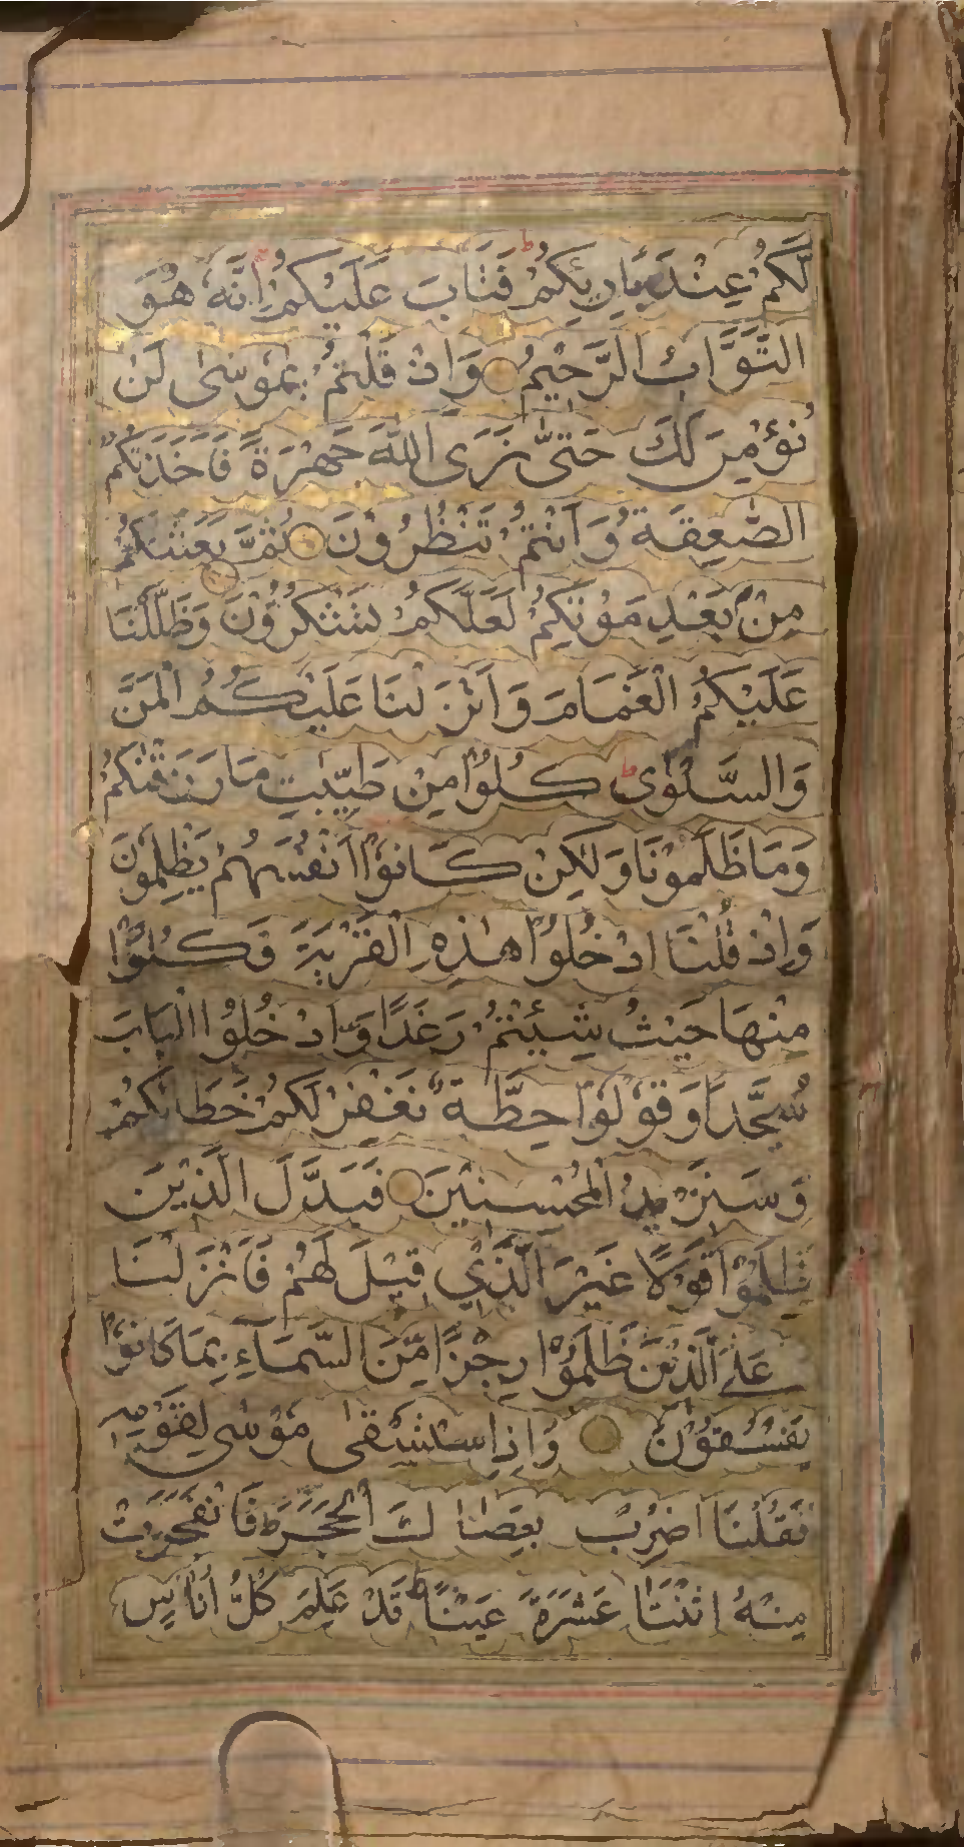 لَّكُمْ عِنْدَ بَارِئِكُمْ ط فَتَابَ عَلَيْكُمْ اِنَّهٗ هُوَ
التَّوَّابُ الرَّحِيْمُ وَاِذْ قُلْتُمْ يٰمُوْسٰى لَنْ
نُؤْمِنَ لَكَ حَتّٰى نَرَى اللّٰهَ جَهْرَةً فَاَخَذَتْكُمُ
الصّٰعِقَةُ وَاَنْتُمْ تَنْظُرُوْنَ ثُمَّ بَعَثْنٰكُمْ
مِنْۢ بَعْدِ مَوْتِكُمْ لَعَلَّكُمْ تَشْكُرُوْنَ وَظَلَّلْنَا
عَلَيْكُمُ الْغَمَامَ وَاَنْزَلْنَا عَلَيْكُمُ الْمَنَّ
وَالسَّلْوٰى ط كُلُوْا مِنْ طَيِّبٰتِ مَا رَزَقْنٰكُمْ
وَمَا ظَلَمُوْنَا وَلٰكِنْ كَانُوْا اَنْفُسَهُمْ يَظْلِمُوْنَ
وَاِذْ قُلْنَا ادْخُلُوْا هٰذِهِ الْقَرْيَةَ فَكُلُوْا
مِنْهَا حَيْثُ شِئْتُمْ رَغَدًا وَّادْخُلُوا الْبَابَ
سُجَّدًا وَّقُوْلُوْا حِطَّةٌ نَّغْفِرْ لَكُمْ خَطٰيٰكُمْ
وَسَنَزِيْدُ الْمُحْسِنِيْنَ فَبَدَّلَ الَّذِيْنَ
ظَلَمُوْا قَوْلًا غَيْرَ الَّذِيْ قِيْلَ لَهُمْ فَاَنْزَلْنَا
عَلَى الَّذِيْنَ ظَلَمُوْا رِجْزًا مِّنَ السَّمَآءِ بِمَا كَانُوْا
يَفْسُقُوْنَ وَاِذِ اسْتَسْقٰى مُوْسٰى لِقَوْمِهٖ
فَقُلْنَا اضْرِبْ بِعَصَاكَ الْحَجَرَ ط فَانْفَجَرَتْ
مِنْهُ اثْنَتَا عَشْرَةَ عَيْنًا ط قَدْ عَلِمَ كُلُّ اُنَاسٍ